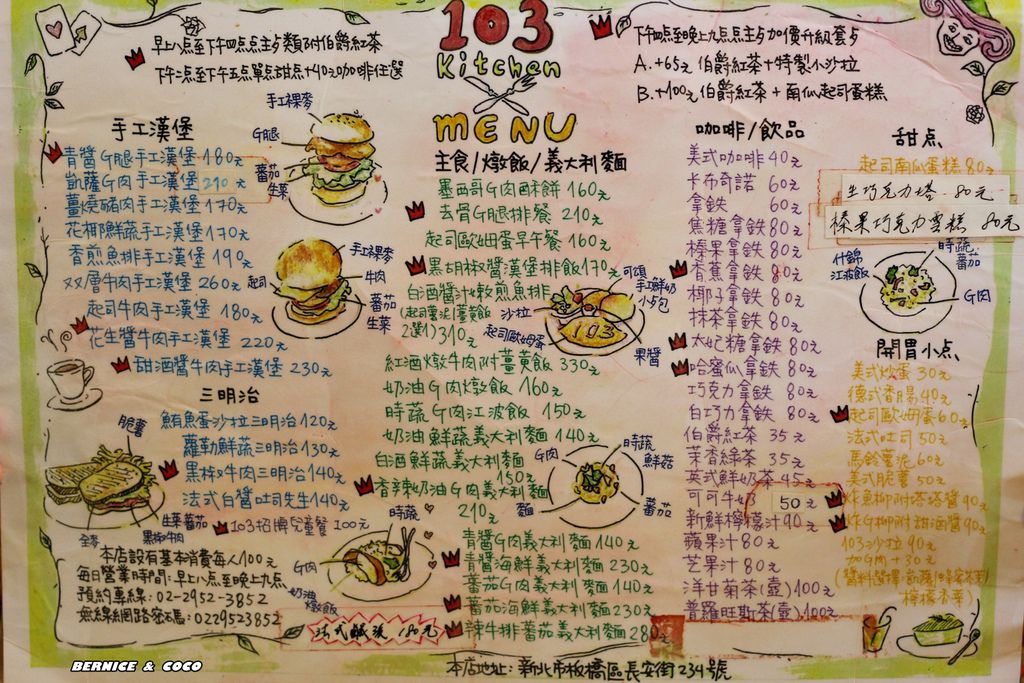 103
Kitchen
MENU
早上八点至下午四点点主与類附伯爵紅茶
下午二点至下午五點單点甜点+40元咖啡任選
下午四点至晚上九点点主与加價升級套与
A.+65元 伯爵紅茶+特製小沙拉
B.+100元 伯爵紅茶+南瓜起司蛋糕
手工漢堡
青醬G腿手工漢堡 180元
凱薩G肉手工漢堡 210元
薑燒豬肉手工漢堡 170元
花椰鮮蔬手工漢堡 170元
香煎魚排手工漢堡 190元
双層牛肉手工漢堡 260元
起司牛肉手工漢堡 180元
花生醬牛肉手工漢堡 220元
甜酒醬牛肉手工漢堡 230元
手工裸麥
G腿
番茄
生菜
手工裸麥
牛肉
起司
番茄
生菜
三明治
鮪魚蛋沙拉三明治 120元
蘿勒鮮蔬三明治 130元
黑椒牛肉三明治 140元
法式白醬吐司先生 140元
103招博兒童餐 100元
脆薯
生菜 番茄
黑椒牛肉
全麥
本店設有基本消費每人100元
每日營業時間:早上八点至晚上九点
預約專線:02-2952-3852
無線網路密碼:0229523852
主食/燉飯/義大利麵
墨西哥G肉酥餅 160元
去骨G腿排餐 210元
起司歐姆蛋早午餐 160元
黑胡椒醬漢堡排飯 170元
白酒醬汁嫩煎魚排
(起司薯泥/薑黃飯
2選1) 310元
紅酒燉牛肉附薑黃飯 330元
奶油G肉燉飯 160元
時蔬G肉江波飯 150元
奶油鮮蔬義大利麵 140元
白酒鮮蔬義大利麵
150元
香辣奶油G肉義大利麵
210元
青醬G肉義大利麵 140元
青醬海鮮義大利麵 230元
番茄G肉義大利麵 140元
番茄海鮮義大利麵 230元
辣牛排番茄義大利麵 280元
可頌
手工鮮奶
小与包
沙拉
103
起司歐姆蛋
果醬
G肉
時蔬
鮮菇
麵
番茄
時蔬
G肉
奶油
燉飯
法式鹹派 180元
咖啡/飲品
美式咖啡 40元
卡布奇諾 60元
拿鐵 60元
焦糖拿鐵 80元
榛果拿鐵 80元
香蕉拿鐵 80元
椰子拿鐵 80元
抹茶拿鐵 80元
太妃糖拿鐵 80元
哈蜜瓜拿鐵 80元
巧克力拿鐵 80元
白巧克力拿鐵 80元
伯爵紅茶 35元
茉香綠茶 35元
英式鮮奶茶 45元
可可牛奶 50元
新鮮檸檬汁 90元
蘋果汁 80元
芒果汁 80元
洋甘菊茶(壺) 100元
普羅旺斯茶(壺) 100元
甜点
起司南瓜蛋糕 80元
生巧克力塔 80元
榛果巧克力蛋糕 80元
什錦
江波飯
時蔬
番茄
G肉
開胃小点
美式炊蛋 30元
德式香腸 40元
起司歐姆蛋 60元
法式吐司 50元
馬鈴薯泥 60元
美式脆薯 50元
炸魚柳附塔塔醬 90元
炸G柳附甜酒醬 90元
103沙拉 90元
加G肉+30元
本店地址:新北市板橋區長安街234號
BERNICE & COCO